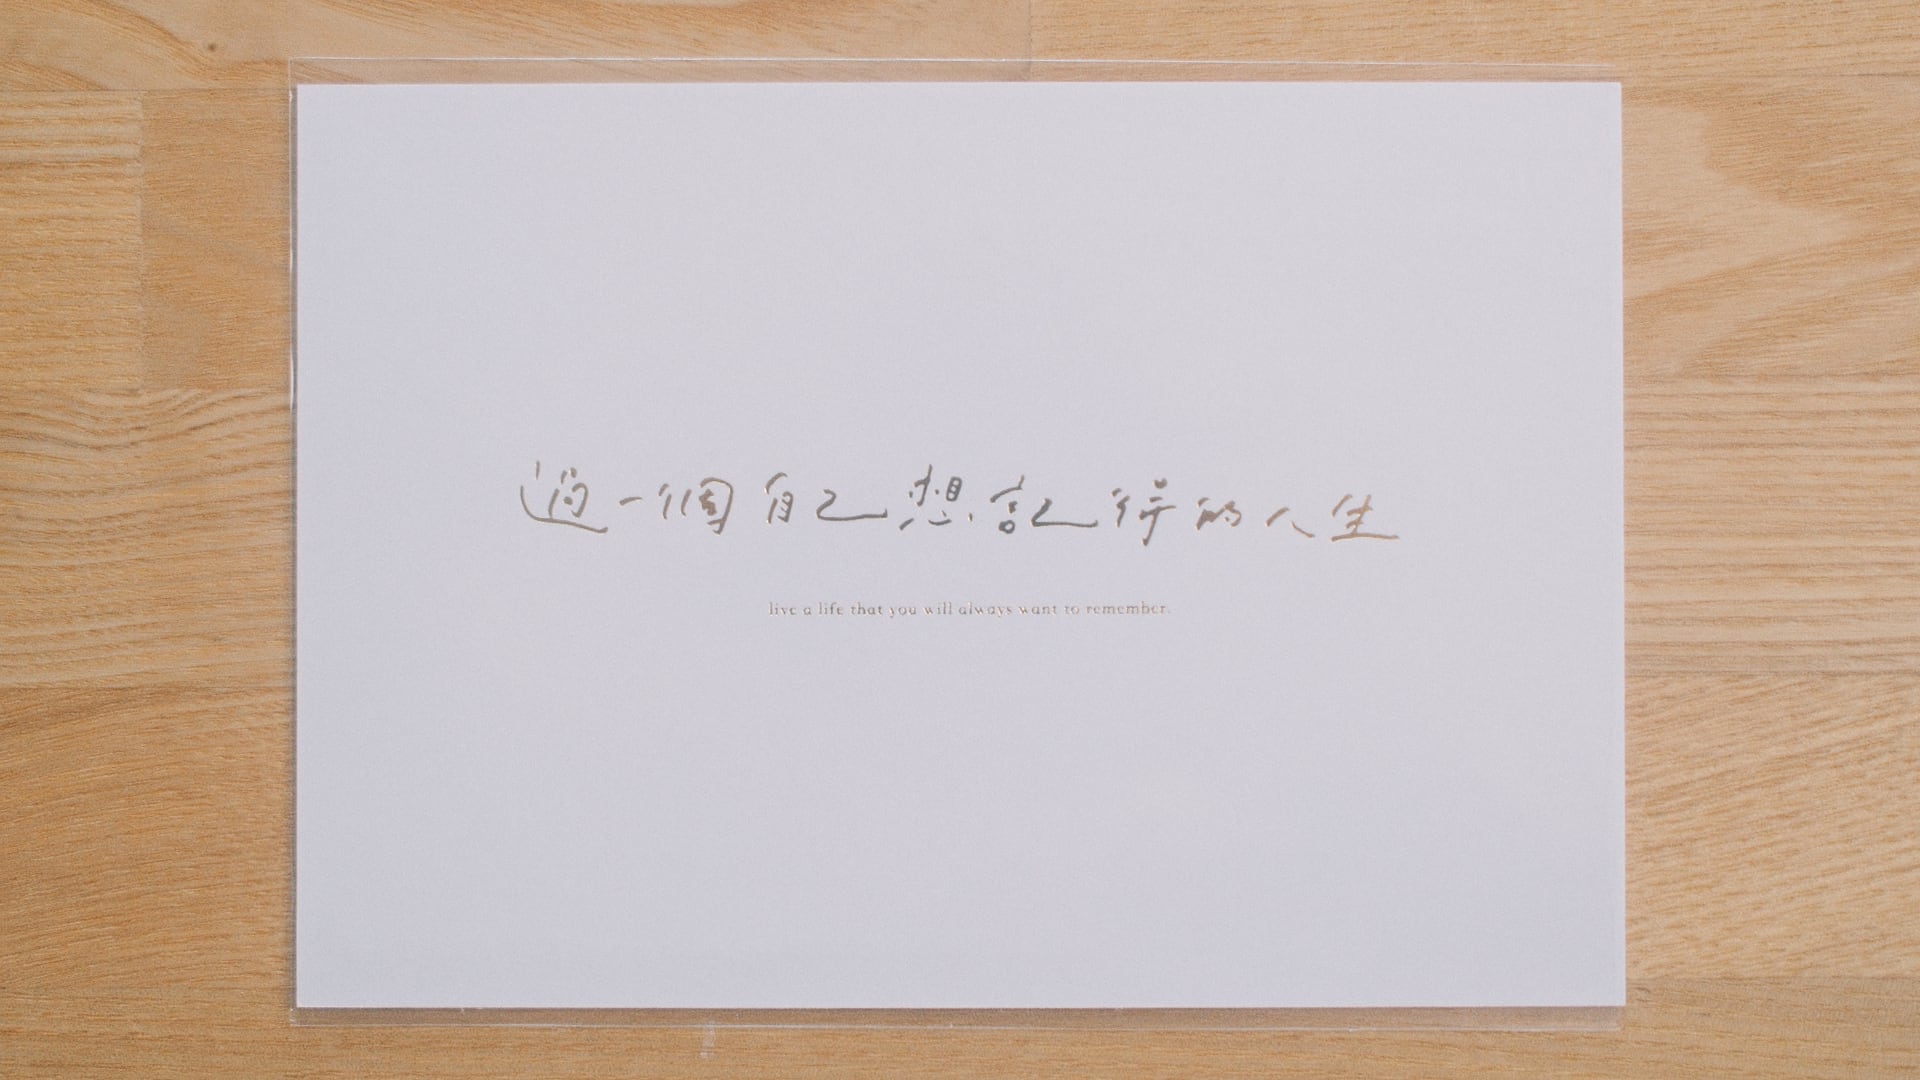 過一個自己想記得的人生
live a life that you will always want to remember.